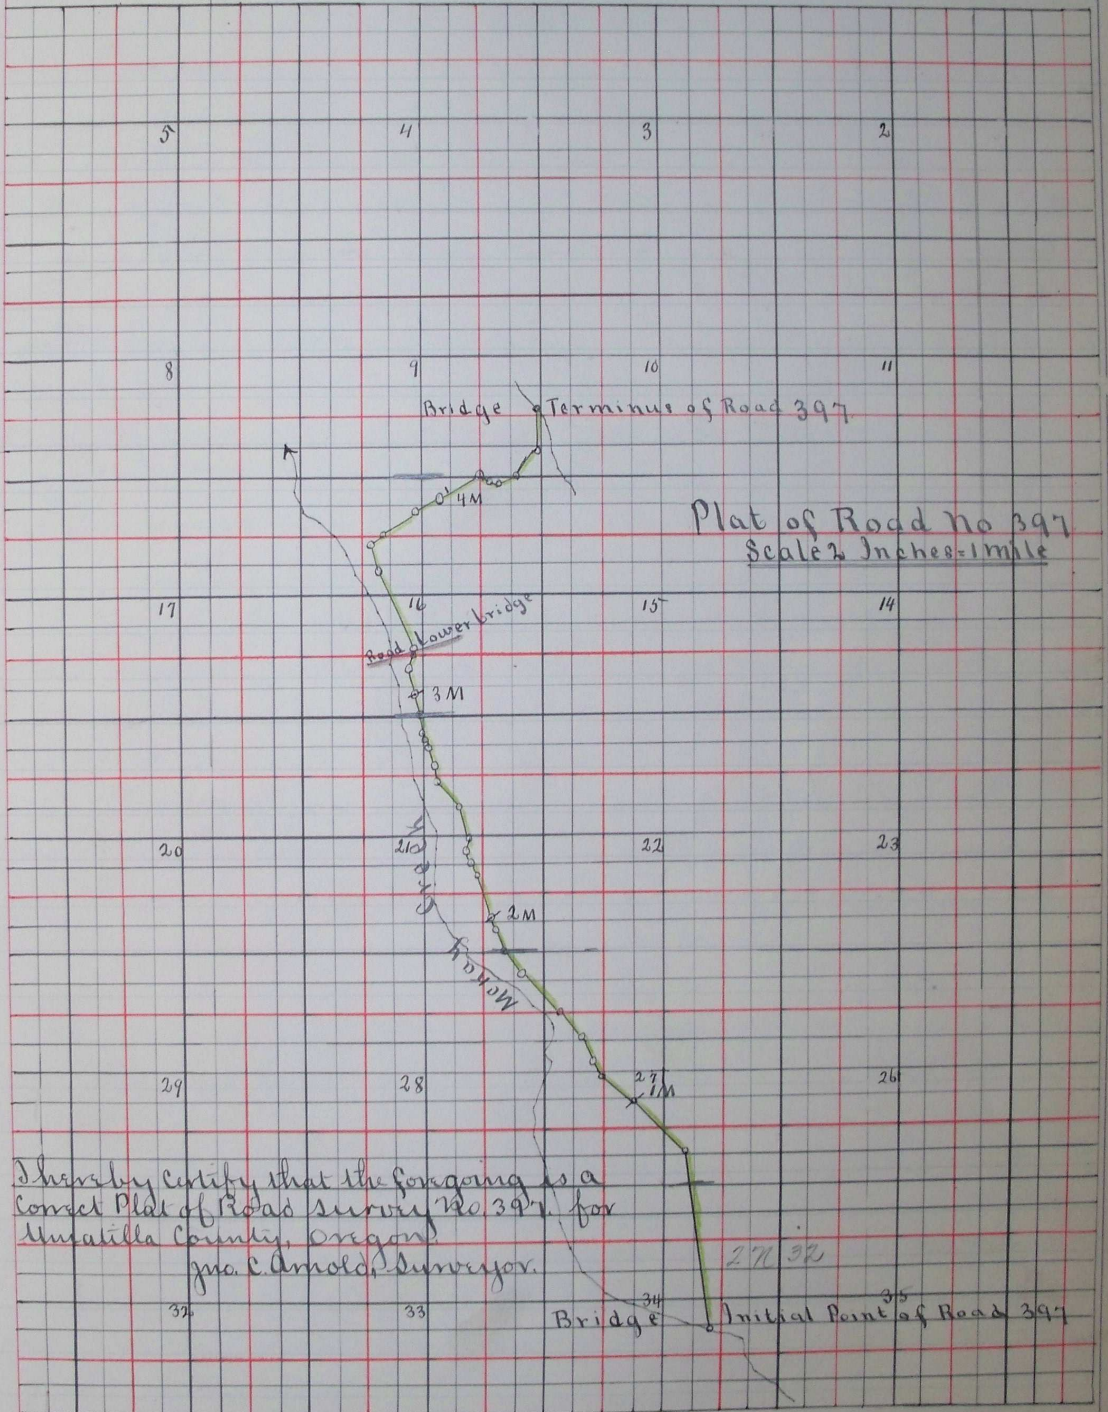 5 4 3 2
8 9 10 11
Bridge Terminus of Road 397
4M
Plat of Road No 397
Scale 2 Inches = 1 mile
17 16 15 14
Road Lower bridge
3M
20 21 22 23
Creek
2M
McKay
29 28 27 26
1M
I hereby certify that the foregoing is a
Correct Plat of Road Survey No 397 for
Umatilla County, Oregon.
Jno. C. Arnold, Surveyor.
2N 32
32 33 34 35
Bridge Initial Point of Road 397